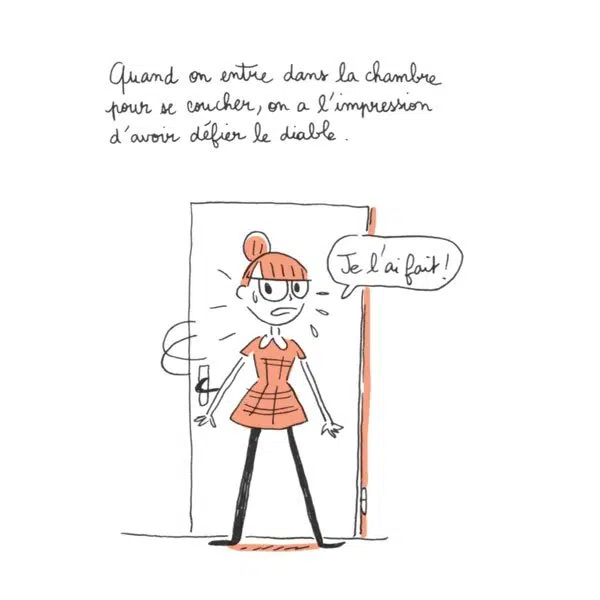 Quand on entre dans la chambre
pour se coucher, on a l'impression
d'avoir défier le diable.
Je l'ai fait !